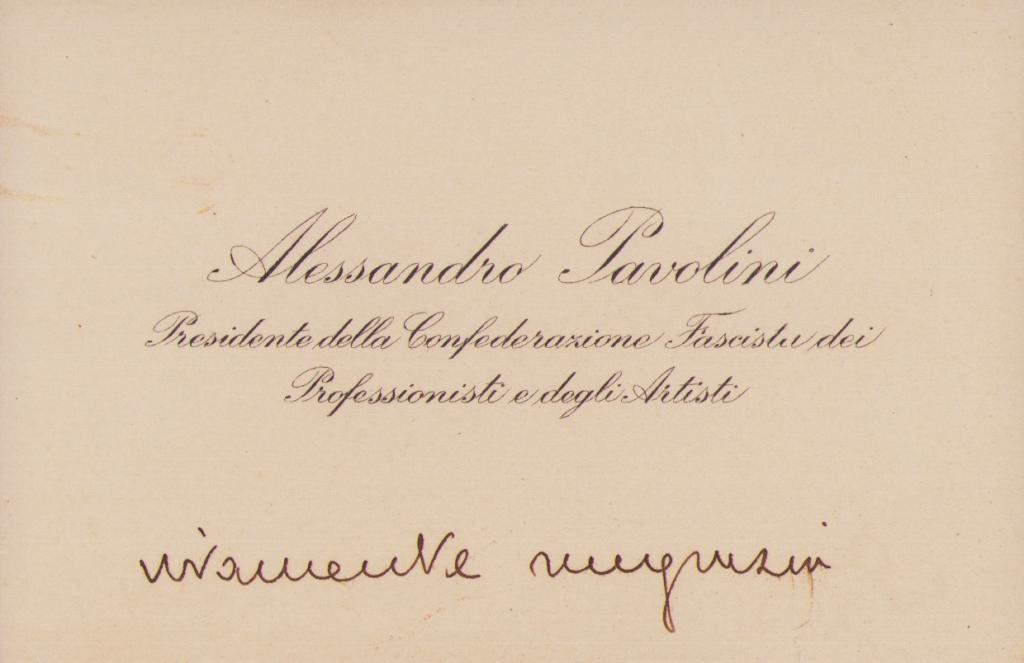 Alessandro Pavolini
Presidente della Confederazione Fascista dei
Professionisti e degli Artisti
vivamente ringrazia